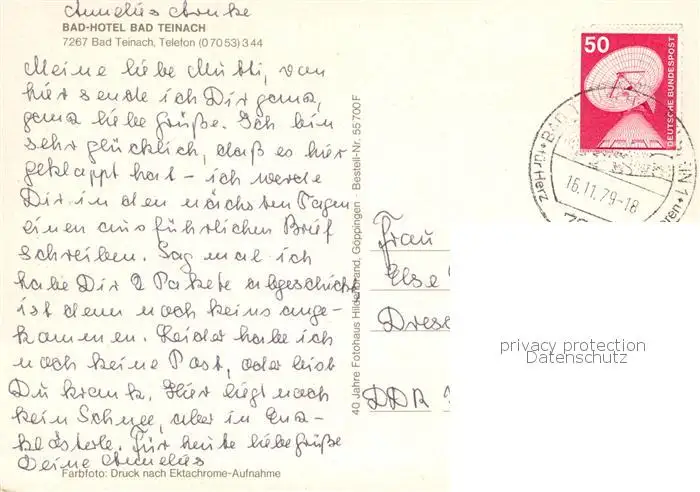 BAD-HOTEL BAD TEINACH
7267 Bad Teinach, Telefon (0 70 53) 3 44
Meine liebe Mutti, von
hier sende ich Dir ganz,
ganz liebe Grüße. Ich bin
sehr glücklich, daß es hier
geklappt hat - ich werde
Dir in den nächsten Tagen
einen ausführlichen Brief
schreiben. Sag mal ich
habe Dir 2 Pakete abgeschickt
ist denn noch keins ange-
kommen. Leider habe ich
noch keine Post, oder bist
Du krank. Hier liegt noch
kein Schnee, aber in Enz-
klösterle. Für heute liebe Grüße
Deine Annelies
Farbfoto: Druck nach Ektachrome-Aufnahme
40 Jahre Fotohaus Hildenbrand, Göppingen - Bestell-Nr. 55 700 F
50
DEUTSCHE BUNDESPOST
16.11.79-18
für Herz
Frau
Else
Dresd
DDR
privacy protection
Datenschutz